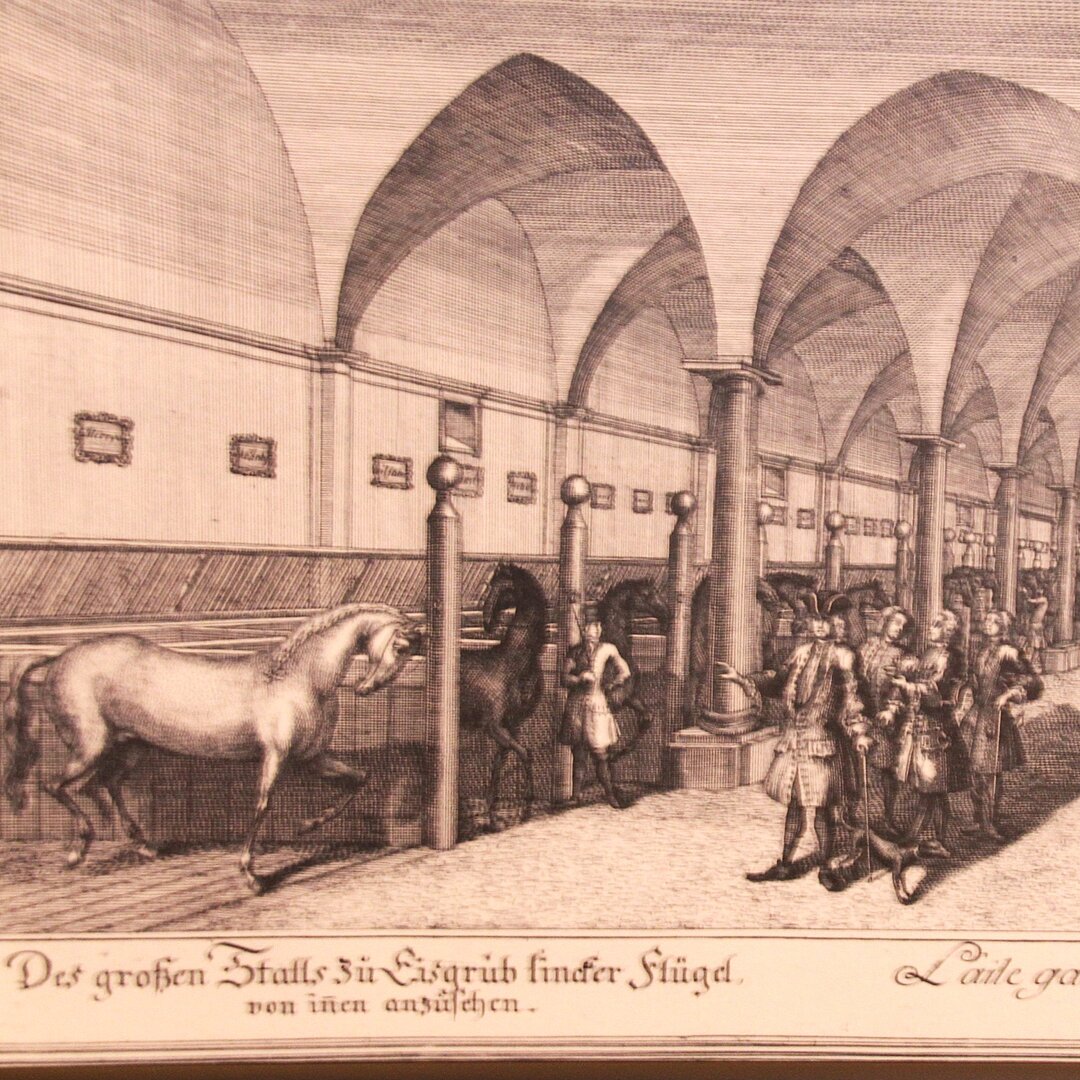 Des großen Stalls zü Eisgrüb lincker Flügel,
von iñen anzüsehen.
L'aile ga